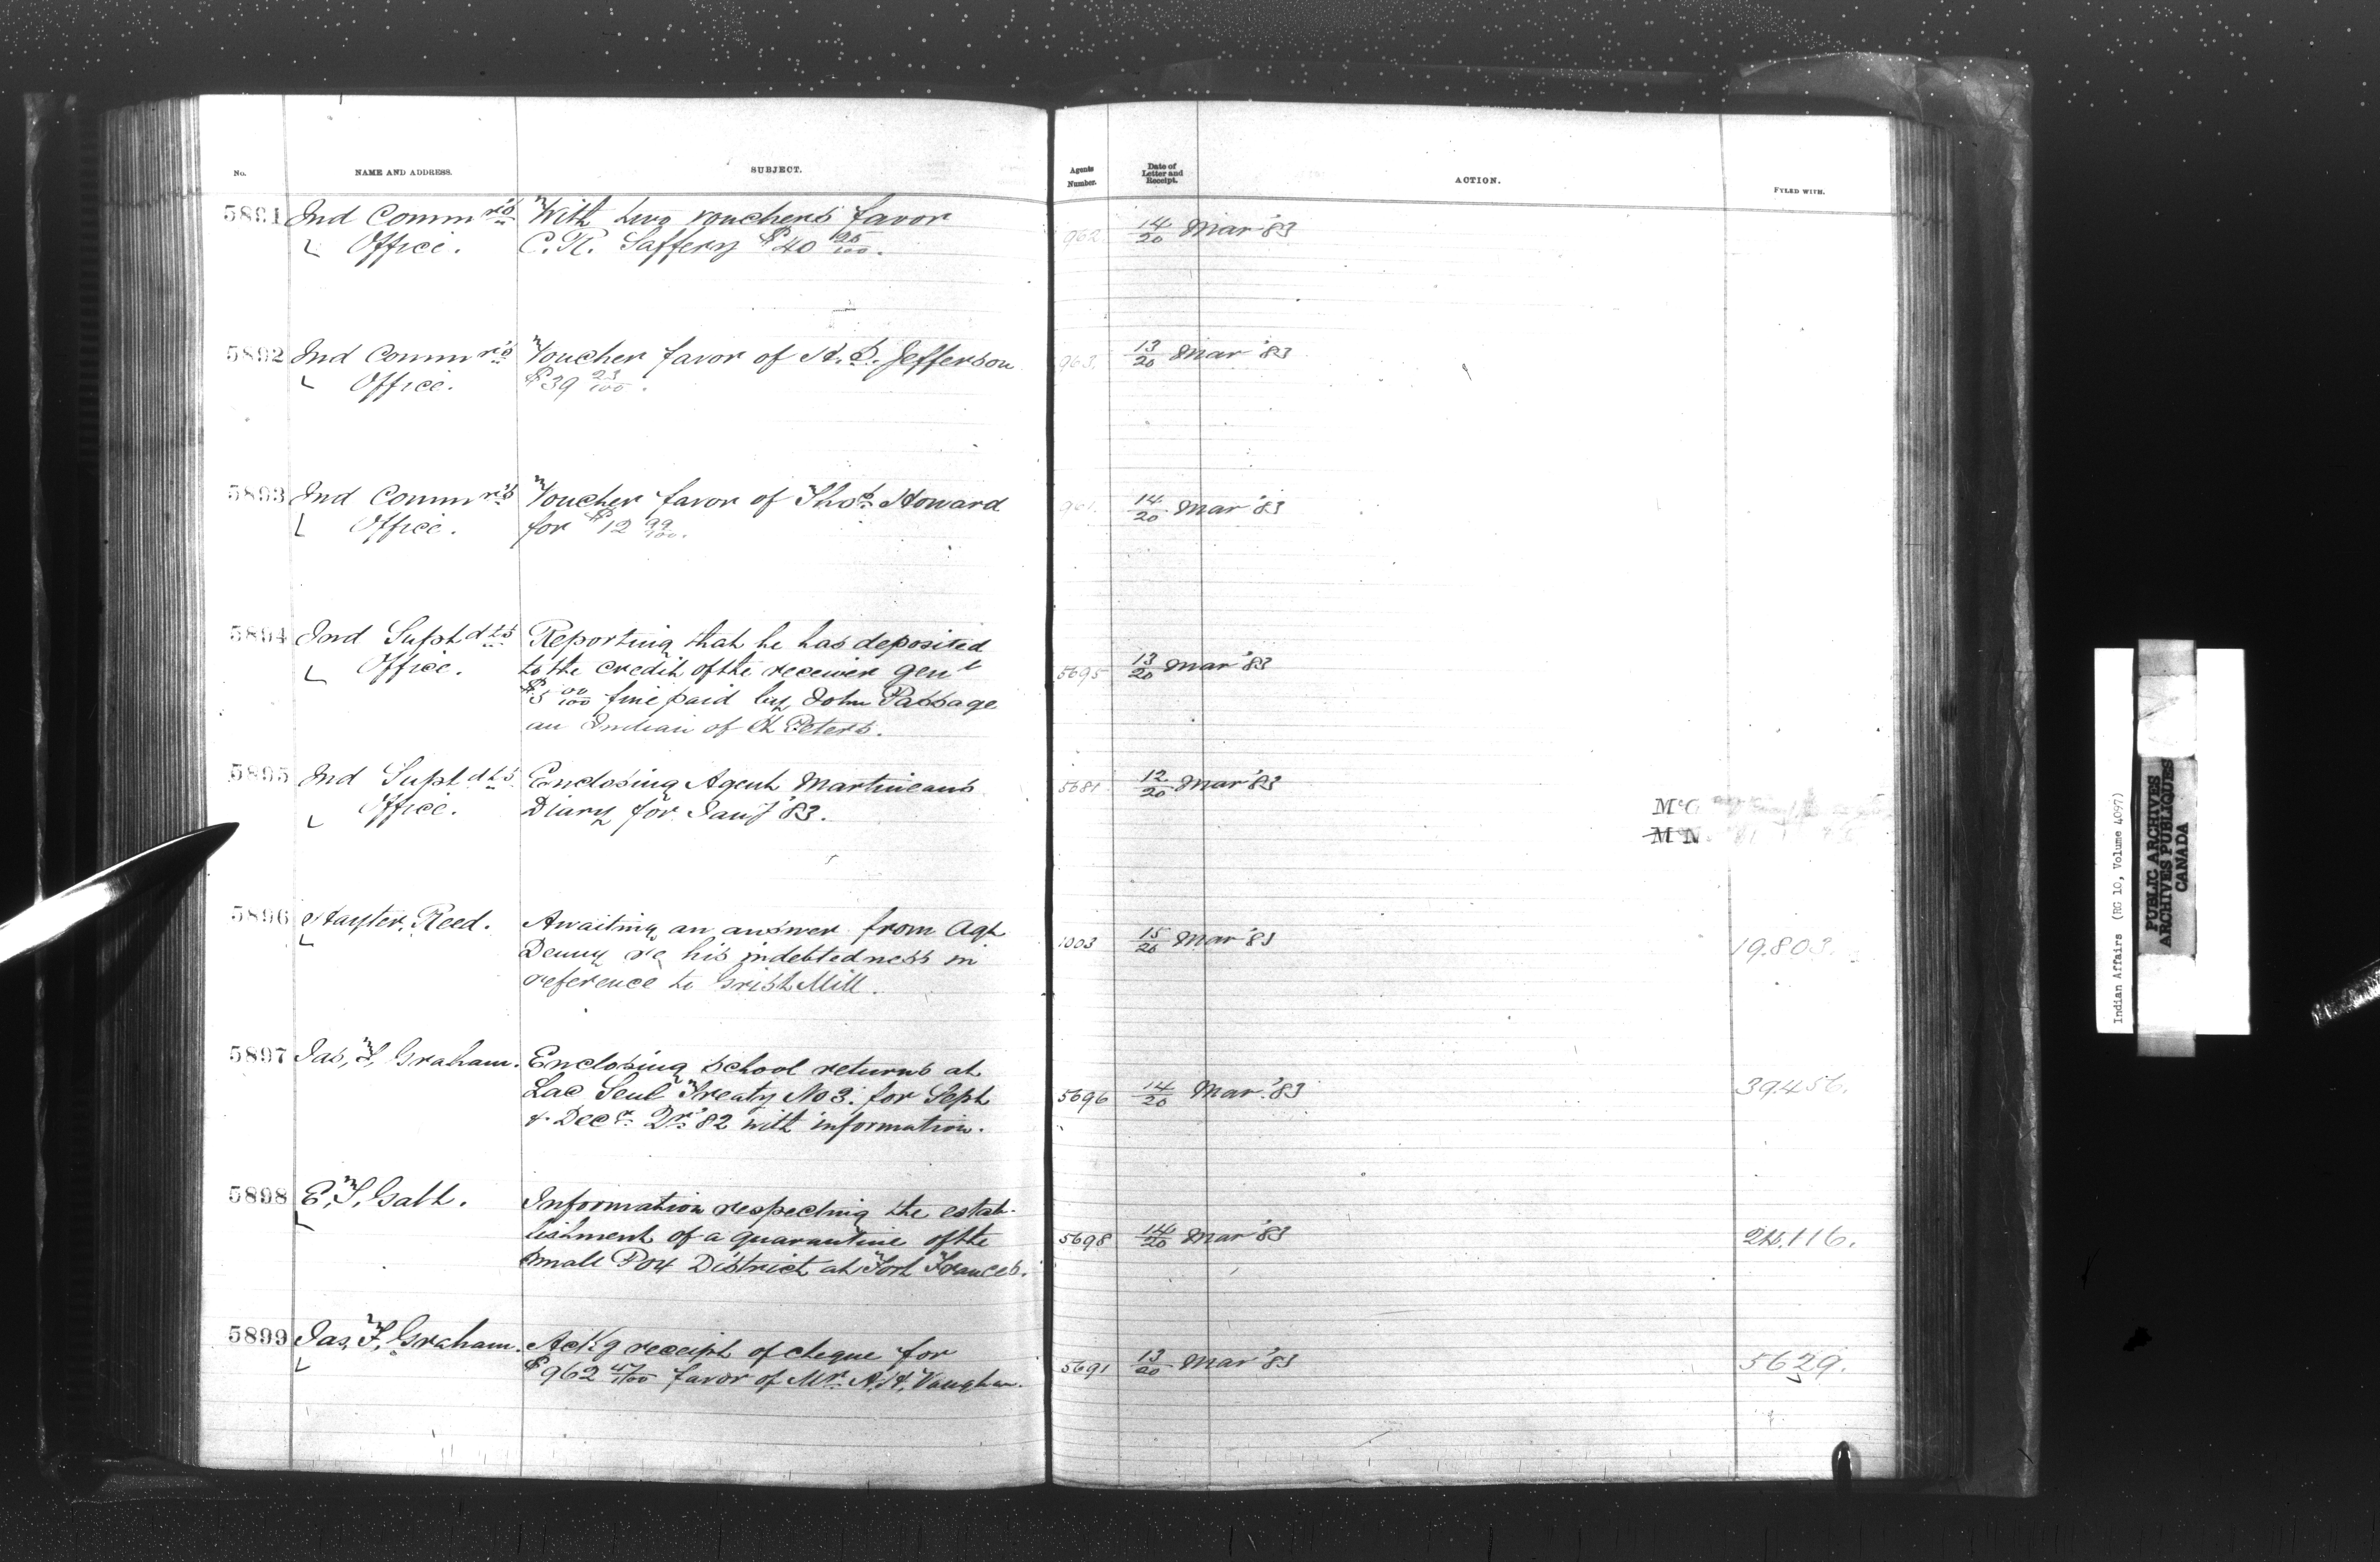 No.
NAME AND ADDRESS.
SUBJECT.
Agents
Number.
Date of
Letter and
Receipt.
ACTION.
FYLED WITH.
5891 Ind Commr's With two vouchers favor
Office. C. R. Saffery $40
962 14/20 Mar '83
5892 Ind Commr's Voucher favor of H. S. Jefferson
Office. $39 23/100.
963. 13/20 Mar '83
5893 Ind Commr's Voucher favor of Thos. Howard
Office. for $12 99/100.
14/20 Mar '83
5894 Ind Suptdts Reporting that he has deposited
Office. to the credit of the receiver Genl
$5 00/100 fine paid by John Passage
an Indian of St Peters.
5695 13/20 Mar '83
5895 Ind Suptdts Enclosing Agent Martineaus
Office. Diary for Jany '83.
5681 12/20 Mar '83
McC
M N
5896 Hayter Reed. Awaiting an answer from Agt
Denny re his indebtedness in
reference to Grist Mill.
1003 15/20 Mar '83
19.803.
5897 Jas, F, Graham. Enclosing School returns at
Lac Seul Treaty No 3. for Sept
& Decr. Qr. '82 with information.
5696 14/20 Mar. '83
39.456.
5898 E. T. Galt. Information respecting the estab-
lishment of a quarantine of the
Small Pox District at Fort Frances.
5698 14/20 Mar '83
24.116.
5899 Jas, F, Graham. Ack'g receipt of cheque for
$962 47/100 favor of Mr. A. H. Vaughan.
5691 13/20 Mar '83
5629.
Indian Affairs (RG 10, Volume 4097)
PUBLIC ARCHIVES
ARCHIVES PUBLIQUES
CANADA